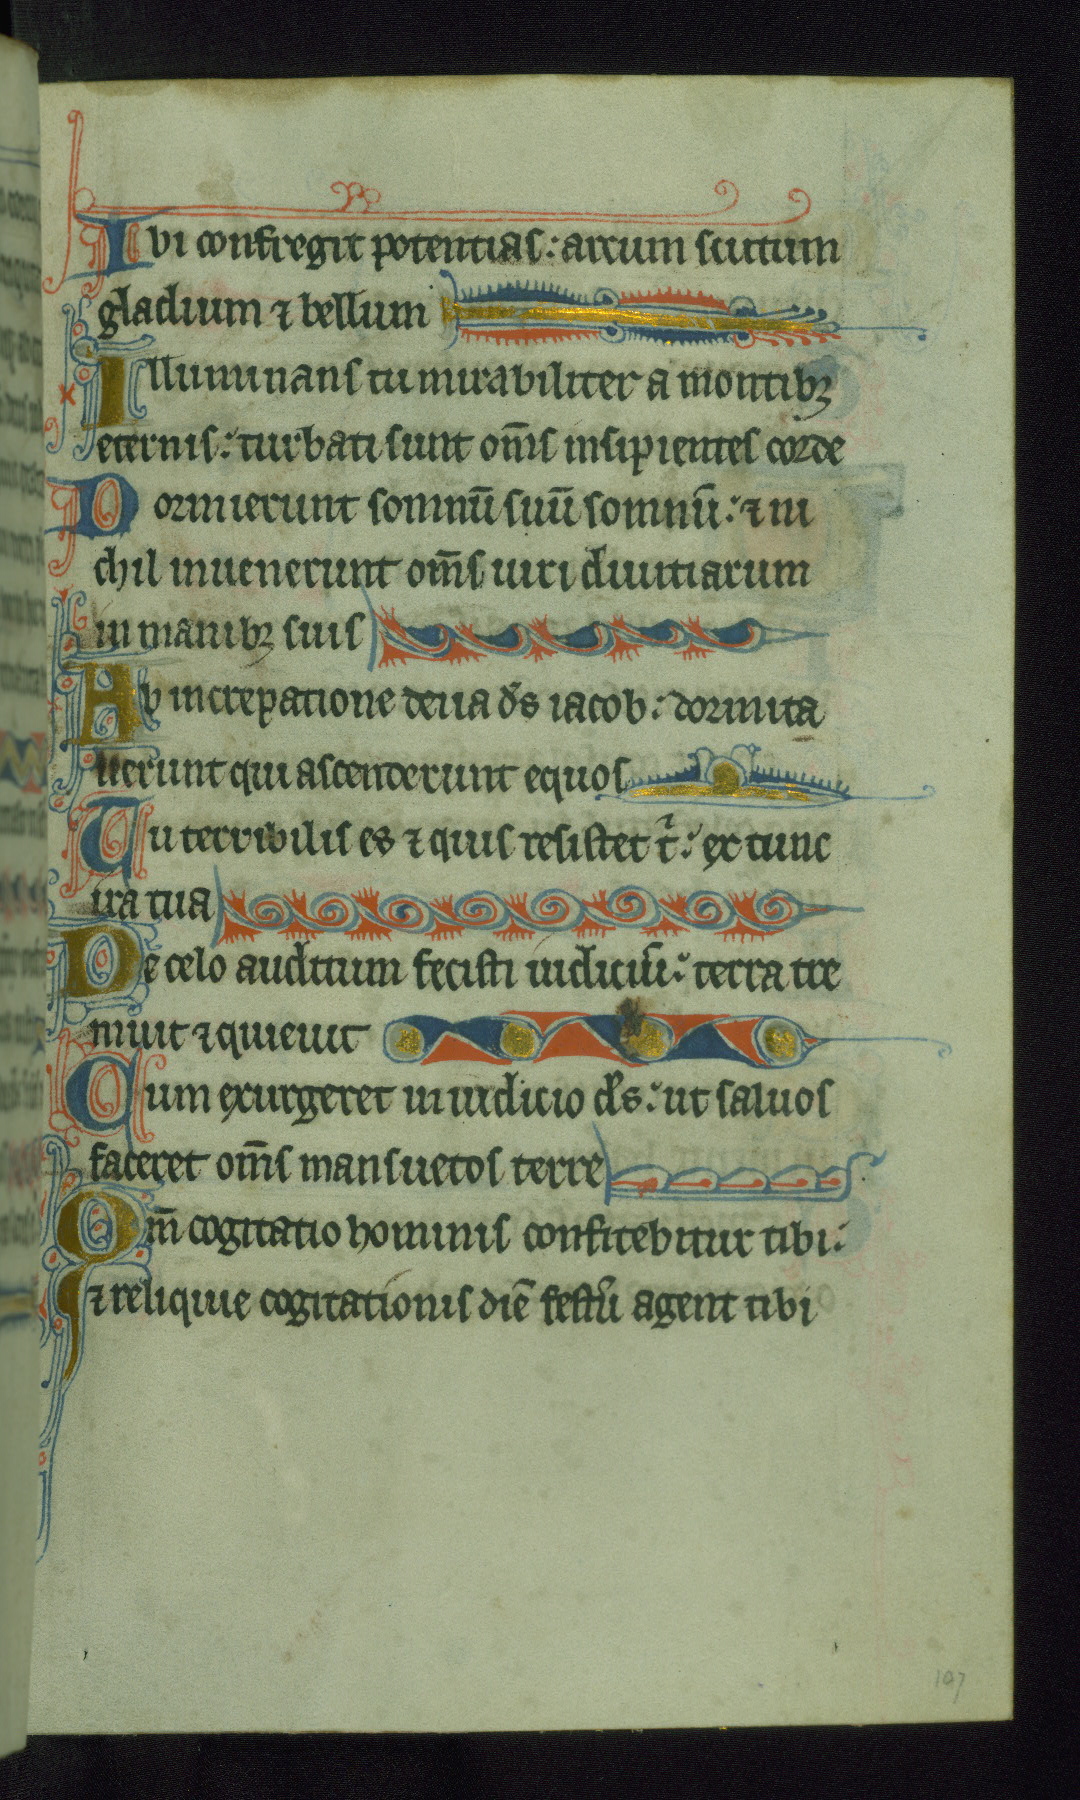 Ibi confregit potentias: arcum scutum
gladium ⁊ bellum
Illuminans tu mirabiliter a montibꝫ
eternis: turbati sunt om̄s insipientes corde
Dormierunt somnū suū somnū: ⁊ ni
chil inuenerunt om̄s uiri diuitiarum
in manibꝫ suis
Ab increpatione tua d̄s iacob: dormita
uerunt qui ascenderunt equos
Tu terribilis es ⁊ quis resistet t̄: ex tunc
ira tua
De celo auditum fecisti iudiciū: terra tre
muit ⁊ quieuit
Cum exurgeret in iudicio d̄s: ut saluos
faceret om̄s mansuetos terre
Qm̄ cogitatio hominis confitebitur tibi:
⁊ reliquie cogitationis diē festū agent tibi
107